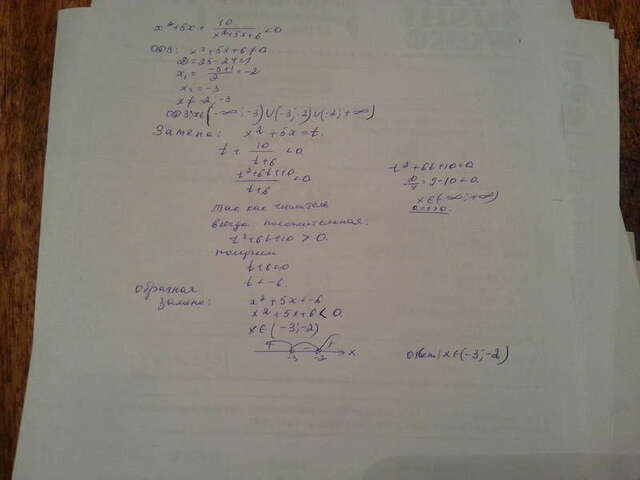 x²+5x+ 10/(x²+5x+6) <0
ОДЗ: x²+5x+6≠0
D=25-24=1
x₁= (-5+1)/2 =-2
x₂=-3
x≠-2;-3
ОДЗ:x∈(-∞;-3)∪(-3;-2)∪(-2;+∞)
Замена: x²+5x=t.
t+ 10/(t+6) <0
(t²+6t+10)/(t+6) <0
t²+6t+10=0
D/4=9-10<0.
x∈(-∞;+∞)
a=1>0.
Так как числитель
всегда положительная.
t²+6t+10>0.
получим
t+6<0
t<-6
Обратная
замена:
x²+5x<-6
x²+5x+6<0.
x∈(-3;-2)
+ - +
-3 -2 x
Ответ: x∈(-3;-2)